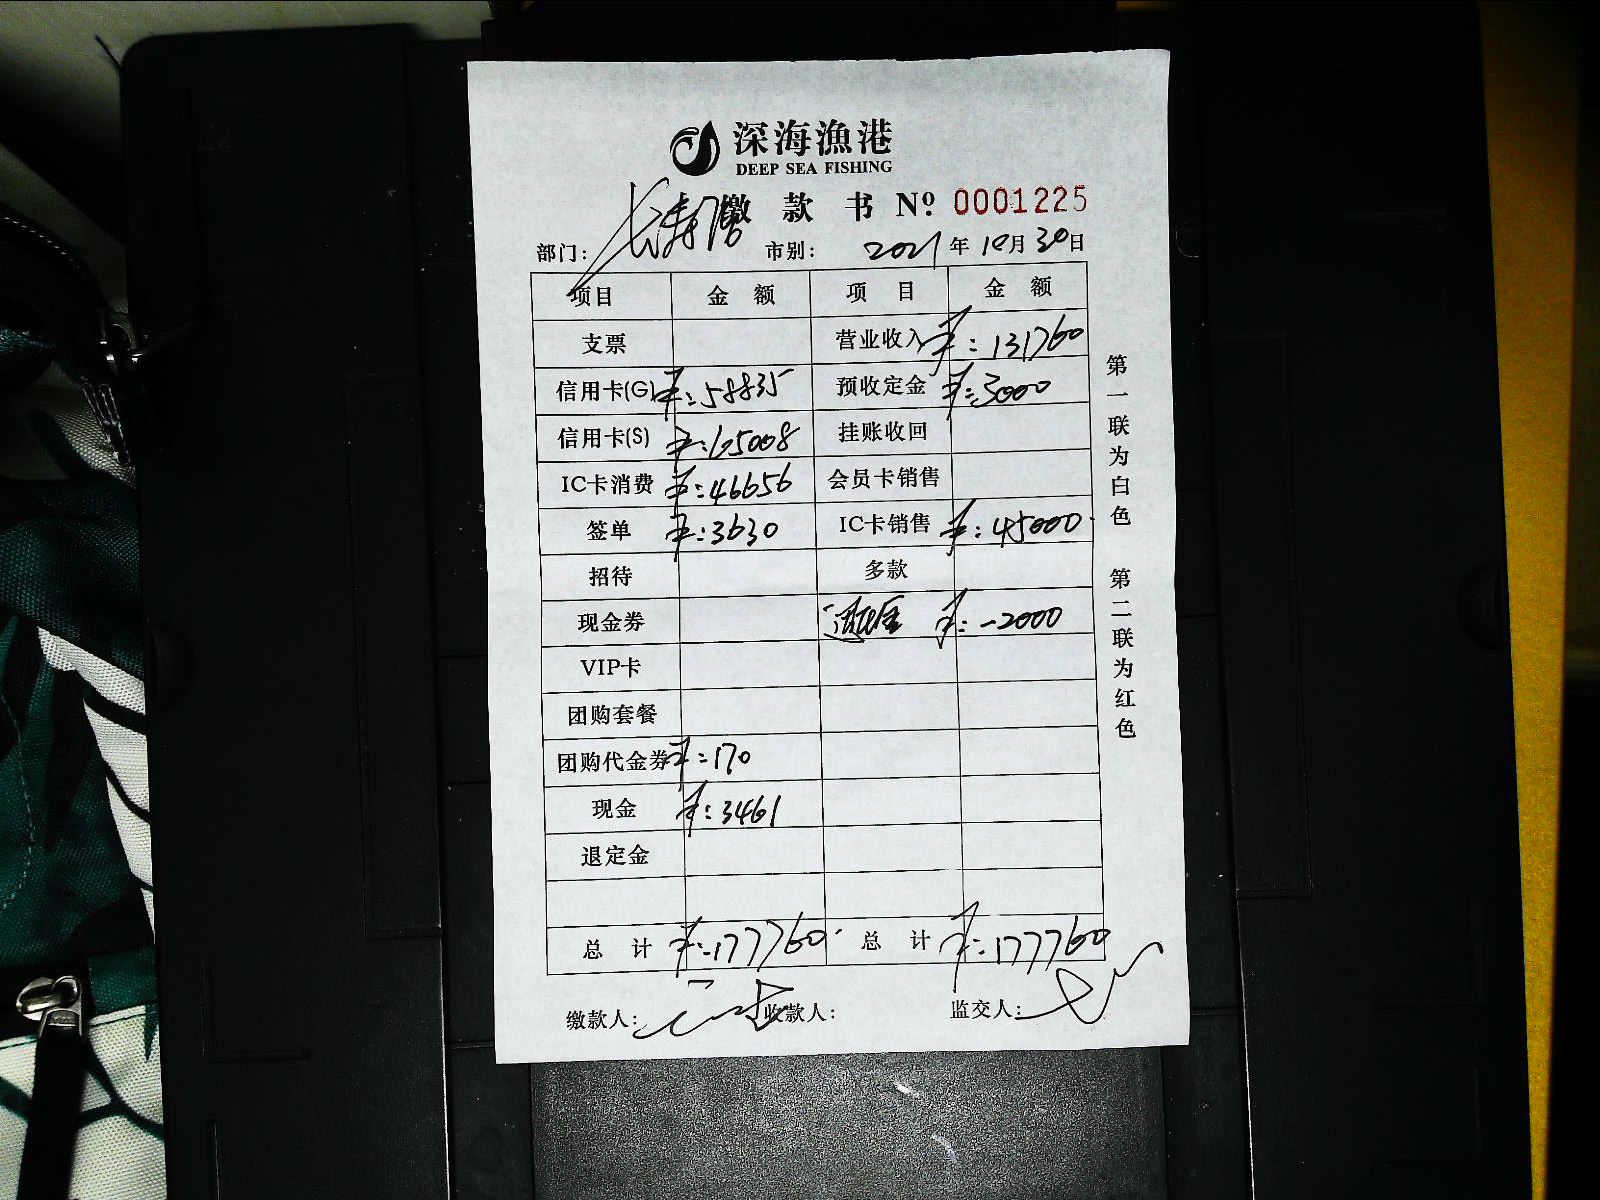 深海漁港
DEEP SEA FISHING
缴 款 书 Nº 0001225
部门: 长寿 市别: 2021 年 10月 30日
项目 金 额 项 目 金 额
支票 营业收入 ¥:131760
信用卡(G) ¥:58835 预收定金 ¥:3000
信用卡(S) ¥:65008 挂账收回
IC卡消费 ¥:46656 会员卡销售
签单 ¥:3630 IC卡销售 ¥:45000
招待 多款
现金券 退定金 ¥:-2000
VIP卡
团购套餐
团购代金券 ¥:170
现金 ¥:3461
退定金
总 计 ¥:177760 总 计 ¥:177760
缴款人: 收款人: 监交人:
第一联为白色 第二联为红色